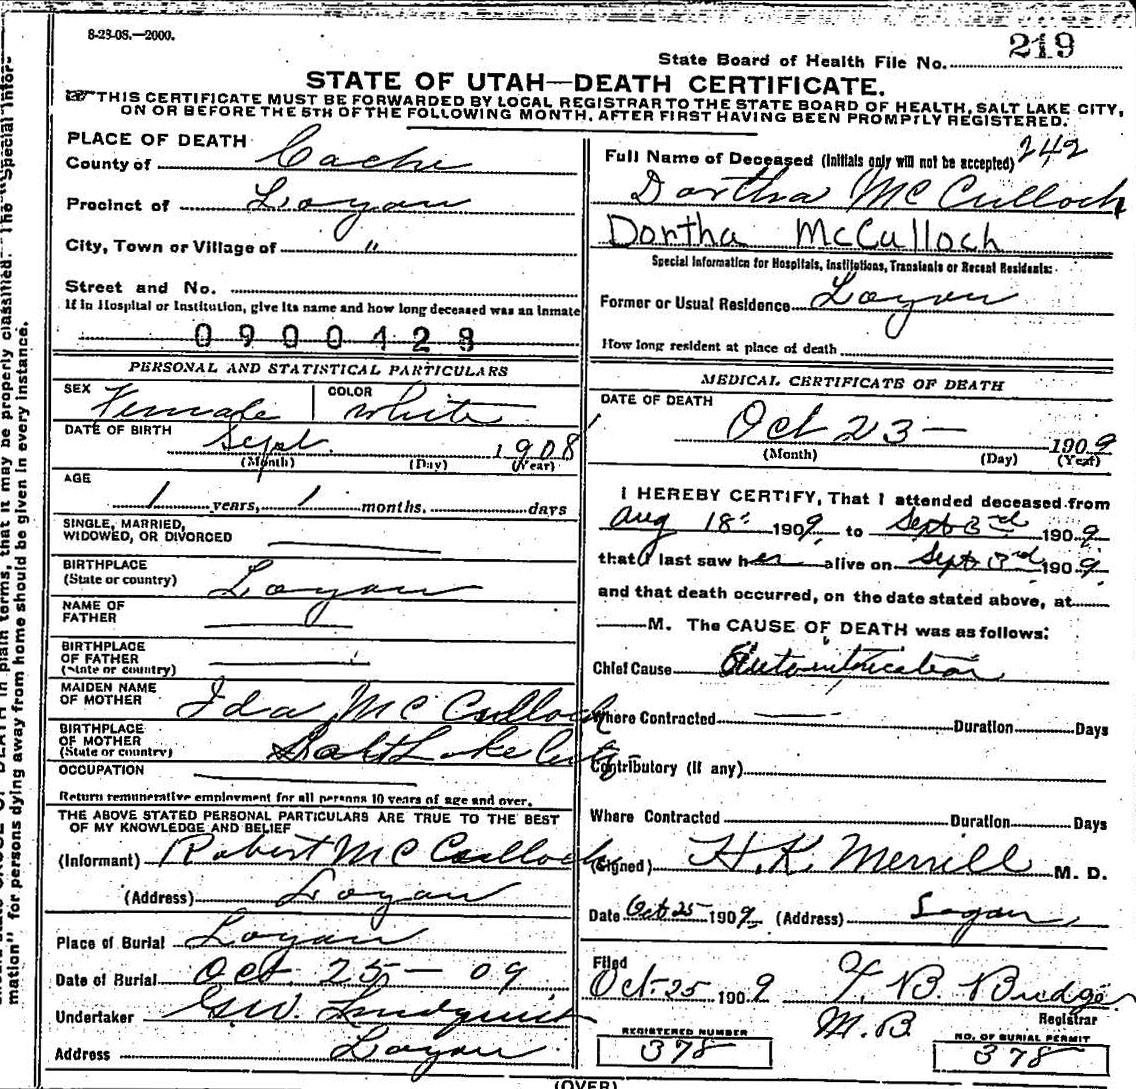 8-23-08.—2000.
State Board of Health File No. 219
STATE OF UTAH—DEATH CERTIFICATE.
THIS CERTIFICATE MUST BE FORWARDED BY LOCAL REGISTRAR TO THE STATE BOARD OF HEALTH, SALT LAKE CITY,
ON OR BEFORE THE 5TH OF THE FOLLOWING MONTH, AFTER FIRST HAVING BEEN PROMPTLY REGISTERED.
PLACE OF DEATH
County of Cache
Precinct of Logan
City, Town or Village of "
Street and No.
If in Hospital or Institution, give its name and how long deceased was an inmate
0900428
PERSONAL AND STATISTICAL PARTICULARS
SEX Female COLOR White
DATE OF BIRTH Sept. 1908
(Month) (Day) (Year)
AGE
1 years, 1 months, days
SINGLE, MARRIED,
WIDOWED, OR DIVORCED
BIRTHPLACE
(State or country) Logan
NAME OF
FATHER
BIRTHPLACE
OF FATHER
(State or country)
MAIDEN NAME
OF MOTHER Ida McCulloch
BIRTHPLACE
OF MOTHER
(State or country) Salt Lake City
OCCUPATION
Return remunerative employment for all persons 10 years of age and over.
THE ABOVE STATED PERSONAL PARTICULARS ARE TRUE TO THE BEST
OF MY KNOWLEDGE AND BELIEF
(Informant) Robert McCulloch
(Address) Logan
Place of Burial Logan
Date of Burial Oct. 25 - 09
Undertaker G.W. Lindquist
Address Logan
Full Name of Deceased (Initials only will not be accepted) 242
Dortha McCulloch
Dortha McCulloch
Special Information for Hospitals, Institutions, Transients or Recent Residents:
Former or Usual Residence Logan
How long resident at place of death
MEDICAL CERTIFICATE OF DEATH
DATE OF DEATH
Oct 23 — 1909
(Month) (Day) (Year)
I HEREBY CERTIFY, That I attended deceased from
Aug 18th 1909, to Sept 3rd 1909,
that I last saw her alive on Sept 3rd, 1909,
and that death occurred, on the date stated above, at
M. The CAUSE OF DEATH was as follows:
Chief Cause Autointoxication
Where Contracted Duration Days
Contributory (if any)
Where Contracted Duration Days
(Signed) H.K. Merrill M. D.
Date Oct 25 1909, (Address) Logan,
Filed
Oct-25 1909 Budge
Registrar
M.B.
REGISTERED NUMBER
378
NO. OF BURIAL PERMIT
378
(OVER)
DEATH in plain terms, that it may be properly classified. The "Special Infor-
mation" for persons dying away from home should be given in every instance.